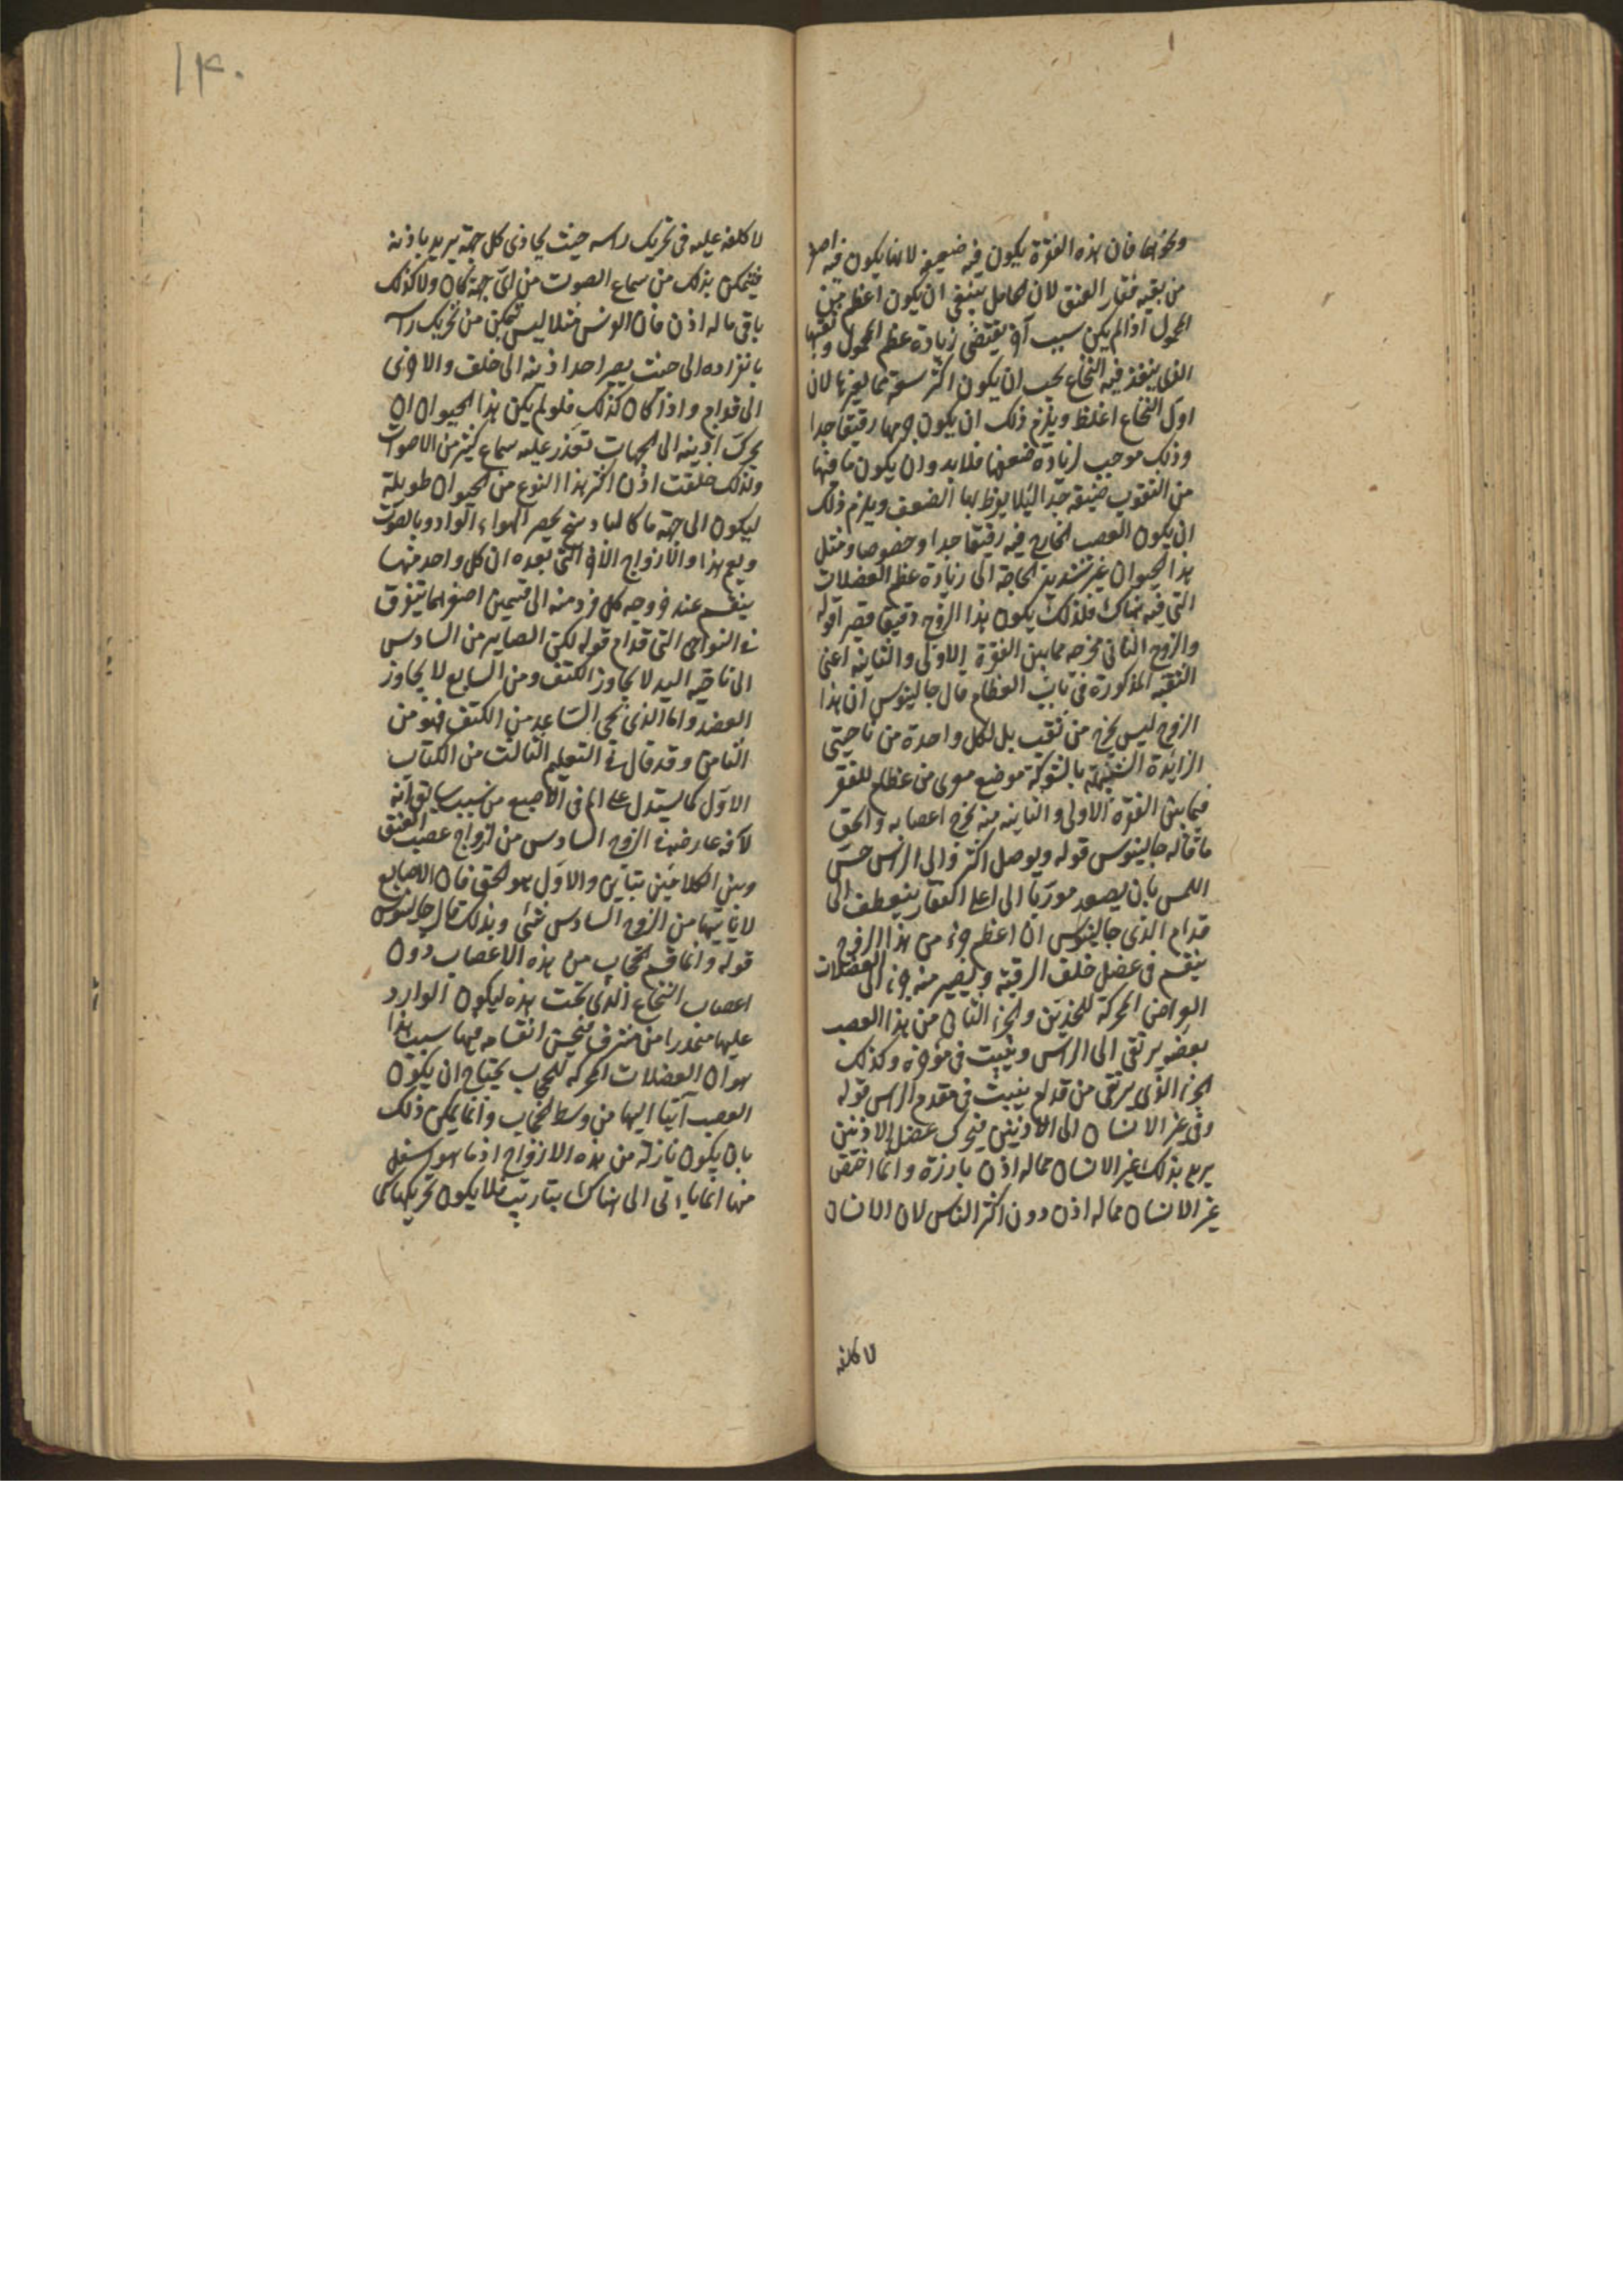 ونحوها فان هذه الفقرة يكون فيه ضعيفة لانها يكون فيه اصغر
من بقيه فقار العنق لان الحامل ينبغى ان يكون اعظم من
المحمول اذا لم يكن سبب آخر يقتضى زيادة عظم المحمول وثقبها
الذى ينفذ فيه النخاع يجب ان يكون اكثر سعة مما لغيرها لان
اول النخاع اغلظ ويلزم ذلك ان يكون جرمها رقيقا جدا
وذلك موجب لزيادة ضعفها فلابد وان يكون ما فيها
من الثقوب ضيقة جدا لئلا يفرط بها الضعف ويلزم ذلك
ان يكون العصب الخارج فيه رقيقا جدا وخصوصا ومثل
هذا الحيوان غير شديد الحاجة الى زيادة عظم العضلات
التى فيه هناك فلذلك يكون هذا الزوج دقيقا قصيرا قوله
والزوج الثانى مخرجه مما بين الفقرة الاولى والثانيه اعنى
الثقبه المذكورة فى باب العظام قال جالينوس ان هذا
الزوج ليس يخرج من ثقب بل لكل واحدة من ناحيتى
الزايدة الشبيهة بالشوكة موضع معرى من عظام للفقر
فيما بين الفقرة الاولى والثانيه منه يخرج اعصابه والحق
ما قاله جالينوس قوله ويوصل اكثره الى الراس حس
اللمس بان يصعد موربا الى اعلى الفقار ينعطف الى
قدام الذى جالينوس ان اعظم جزء من هذا الزوج
ينقسم فى عضل خلف الرقبة ويصير منه جزء الى العضلات
العراض المحركة للخدين والجزء الثانى من هذا العصب
بعضه يرتقى الى الراس ويثبت فى مؤخره وكذلك
الجزء الذى يرتقى من قدام يثبت فى مقدم الراس قوله
وفى غير الانسان الى الاذنين فيحرك عضل الاذنين
يريد بذلك غير الانسان مما له اذن بارزة وانما اختص
غير الانسان مما له اذن دون اكثر الناس لان الانسان
لا كلفه
١٤٠
لا كلفه عليه فى تحريك راسه حيث يحاذى كل جهة يريد باذنه
فيتمكن بذلك من سماع الصوت من اى جهة كان ولا كذلك
باقى ما له اذن فان الفرس مثلا ليس يتمكن من تحريك راسه
بانفراده الى حيث يصير احد اذنيه الى خلف والاخرى
الى قدام واذا كان كذلك فلو لم يكن هذا الحيوان ان
يحرك اذنيه الى الجهات تعذر عليه سماع كثير من الاصوات
ولذلك خلقت اذن اكثر هذا النوع من الحيوان طويلة
ليكون الى جهة ما كالبادهنج يحصر الهواء الوارد بالصوت
ويعم هذا والازواج الاخر التى بعده ان كل واحد منها
ينقسم عند خروجه كل فرد منه الى قسمين اصغرهما يتفرق
فى النواحى التى قدام قوله لكن الصاير من السادس
الى ناحيه اليد لا يجاوز الكتف ومن السابع لا يجاوز
العضد واما الذى يجى الساعد من الكتف فهو من
الثامن وقد قال فى التعليم الثالث من الكتاب
الاول كما يستدل على الم فى الاصبع من سبب سابق انه
لآفة عارضة فى الزوج السادس من ازواج عصب العنق
وبين الكلامين تباين والاول هو الحق فان الاصابع
لا ياتيها من الزوج السادس شئ وبذلك قال جالينوس
قوله وانما قسم الحجاب من هذه الاعصاب دون
اعصاب النخاع الذى تحت هذه ليكون الوارد
عليها منحدرا من مشرف فيحسن انقسامه فيها سبب هذا
هو ان العضلات المحركه للحجاب يحتاج ان يكون
العصب آتيا اليها من وسط الحجاب وانما يمكن ذلك
بان يكون نازلة من هذه الازواج اذ ما هو اسفل
منها انما ياتى الى هناك بتاريب فلا يكون تحريكها كما